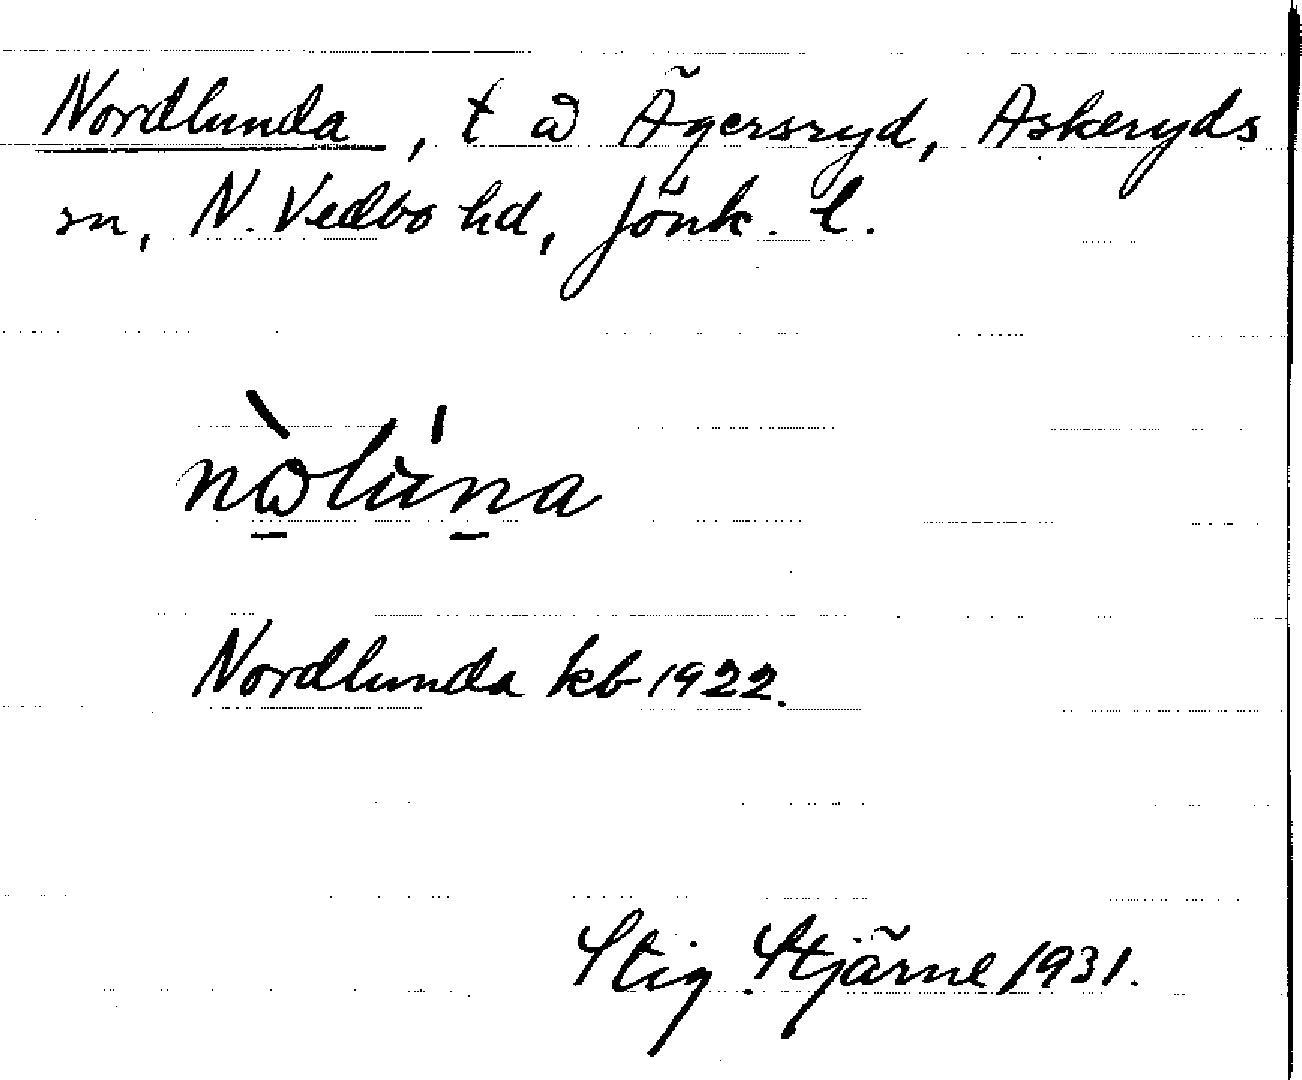 Nordlunda, t å Ägersryd, Askeryds
sn, N. Vedbo hd, Jönk. l.
Nordlunda kb 1922.
Stig Stjärne 1931.